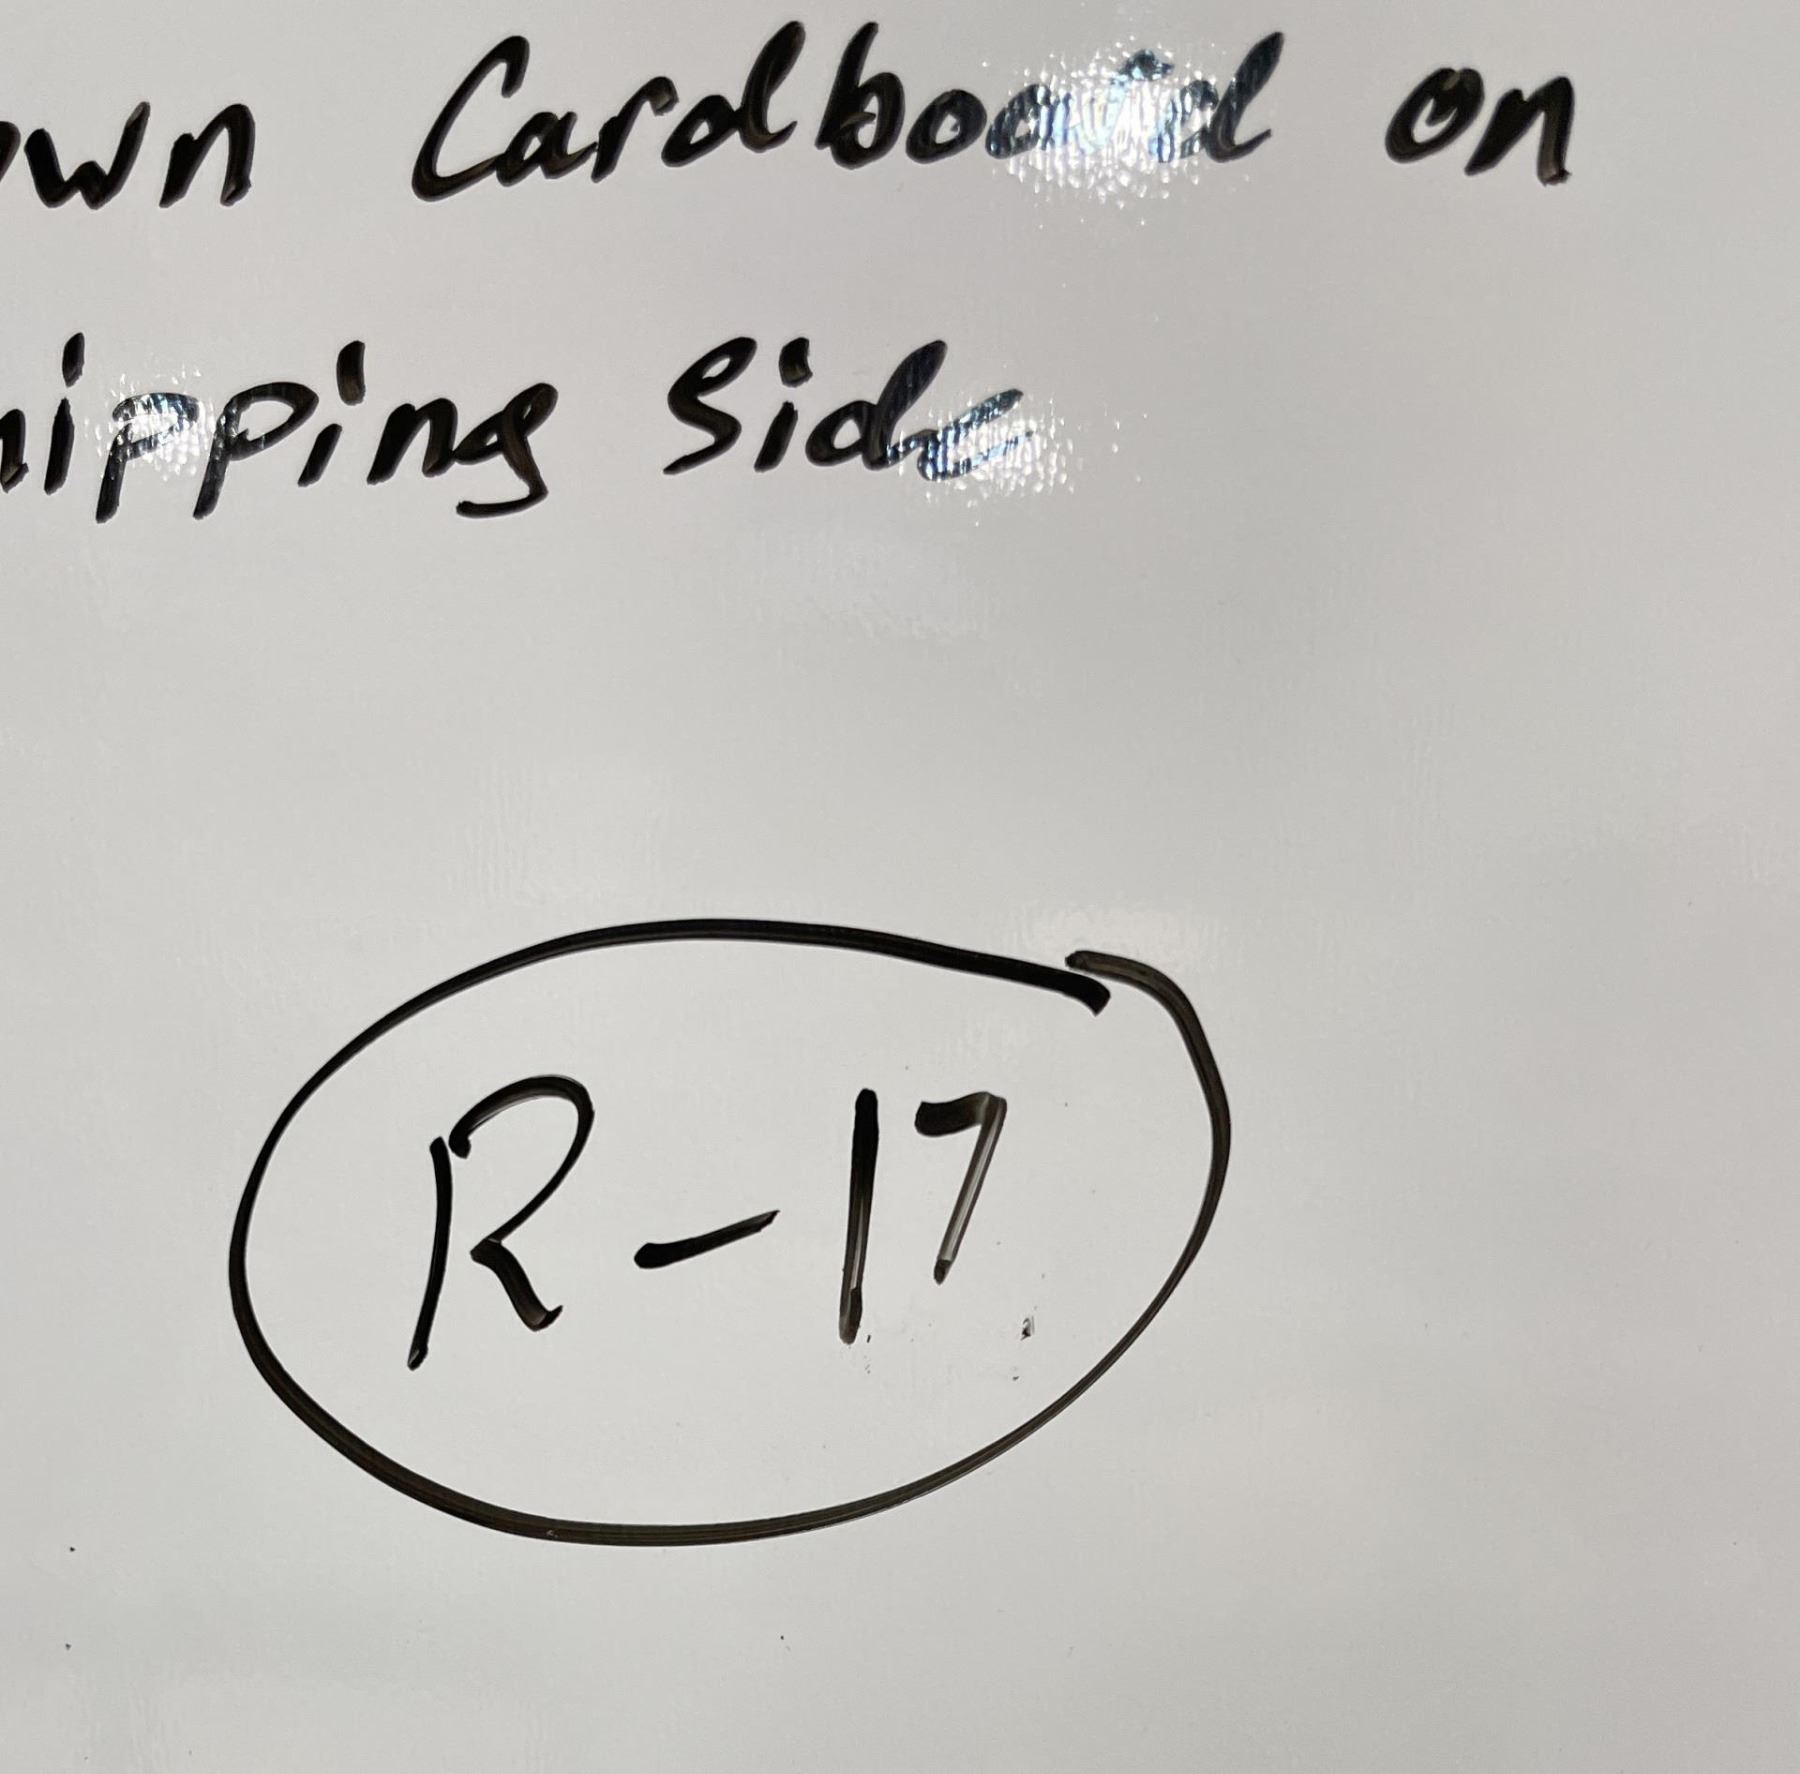 own Cardboard on
hipping Side
R-17